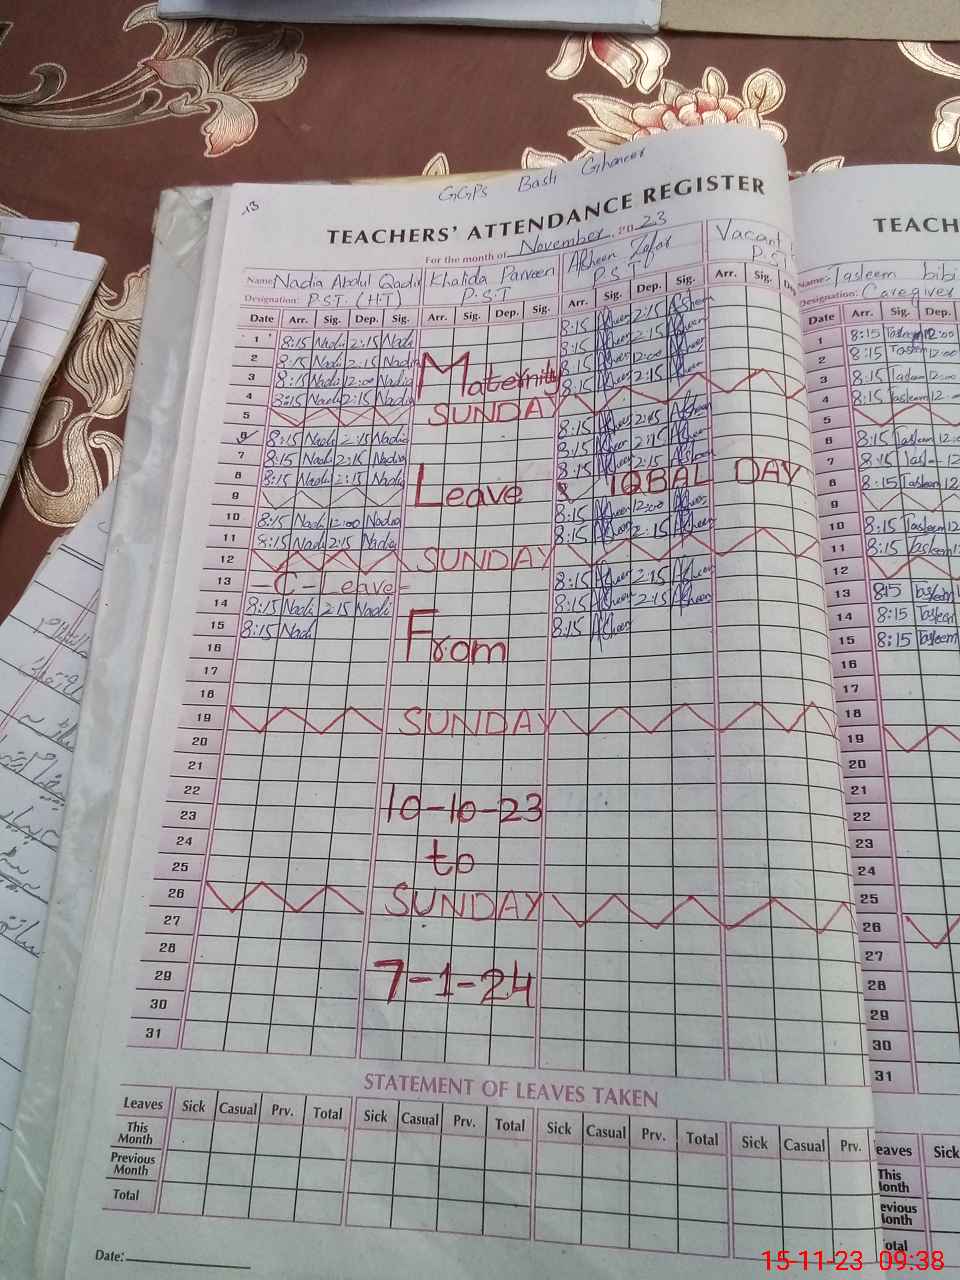 GGPS Basti Ghaneer
13
TEACHERS' ATTENDANCE REGISTER
TEACH
For the month of November 2023
Name: Nadia Abdul Qadir Khalida Parveen Afsheen Zafar Vacant
Designation: P.S.T. (HT) P.S.T P.S.T P.S.T
Name: Tasleem bibi
Designation: Caregiver
Date Arr. Sig. Dep. Sig. Arr. Sig. Dep. Sig. Arr. Sig. Dep. Sig. Arr. Sig. De
Date Arr. Sig. Dep.
1 8:15 Nadi 2:15 Nadi 8:15 Afsheen 2:15 Afsheen
2 8:15 Nadi 2:15 Nadia 8:15 Afsheen 2:15 Afsheen
3 8:15 Nadi 12:00 Nadia Maternity 8:15 Afsheen 12:00 Afsheen
4 8:15 Nadi 2:15 Nadia 8:15 Afsheen 2:15 Afsheen
5 SUNDAY
6 8:15 Nadi 2:15 Nadia 8:15 Afsheen 2:15 Afsheen
7 8:15 Nadi 2:15 Nadia 8:15 Afsheen 2:15 Afsheen
8 8:15 Nadi 2:15 Nadia 8:15 Afsheen 2:15 Afsheen
9 Leave IQBAL DAY
10 8:15 Nadi 12:00 Nadia 8:15 Afsheen 12:00 Afsheen
11 8:15 Nadi 2:15 Nadia 8:15 Afsheen 2:15 Afsheen
12 SUNDAY
13 -C-Leave- 8:15 Afsheen 2:15 Afsheen
14 8:15 Nadi 2:15 Nadi 8:15 Afsheen 2:15 Afsheen
15 8:15 Nadi 8:15 Afsheen
16 From
17
18
19 SUNDAY
20
21
22
23 10-10-23
24
25 to
26 SUNDAY
27
28
29 7-1-24
30
31
1 8:15 Tasleem 12:00
2 8:15 Tasleem 12:00
3 8:15 Tasleem 12:00
4 8:15 Tasleem 12
5
6 8:15 Tasleem 12
7 8:15 Tasl 12
8 8:15 Tasleem 12
9
10 8:15 Tasleem 12
11 8:15 Tasleem 12
12
13 8:15 Tasleem 1
14 8:15 Tasleem
15 8:15 Tasleem
16
17
18
19
20
21
22
23
24
25
26
27
28
29
30
31
STATEMENT OF LEAVES TAKEN
Leaves Sick Casual Prv. Total Sick Casual Prv. Total Sick Casual Prv. Total Sick Casual Prv.
This Month
Previous Month
Total
eaves Sick
This
onth
evious
onth
otal
Date:
15-11-23 09:38